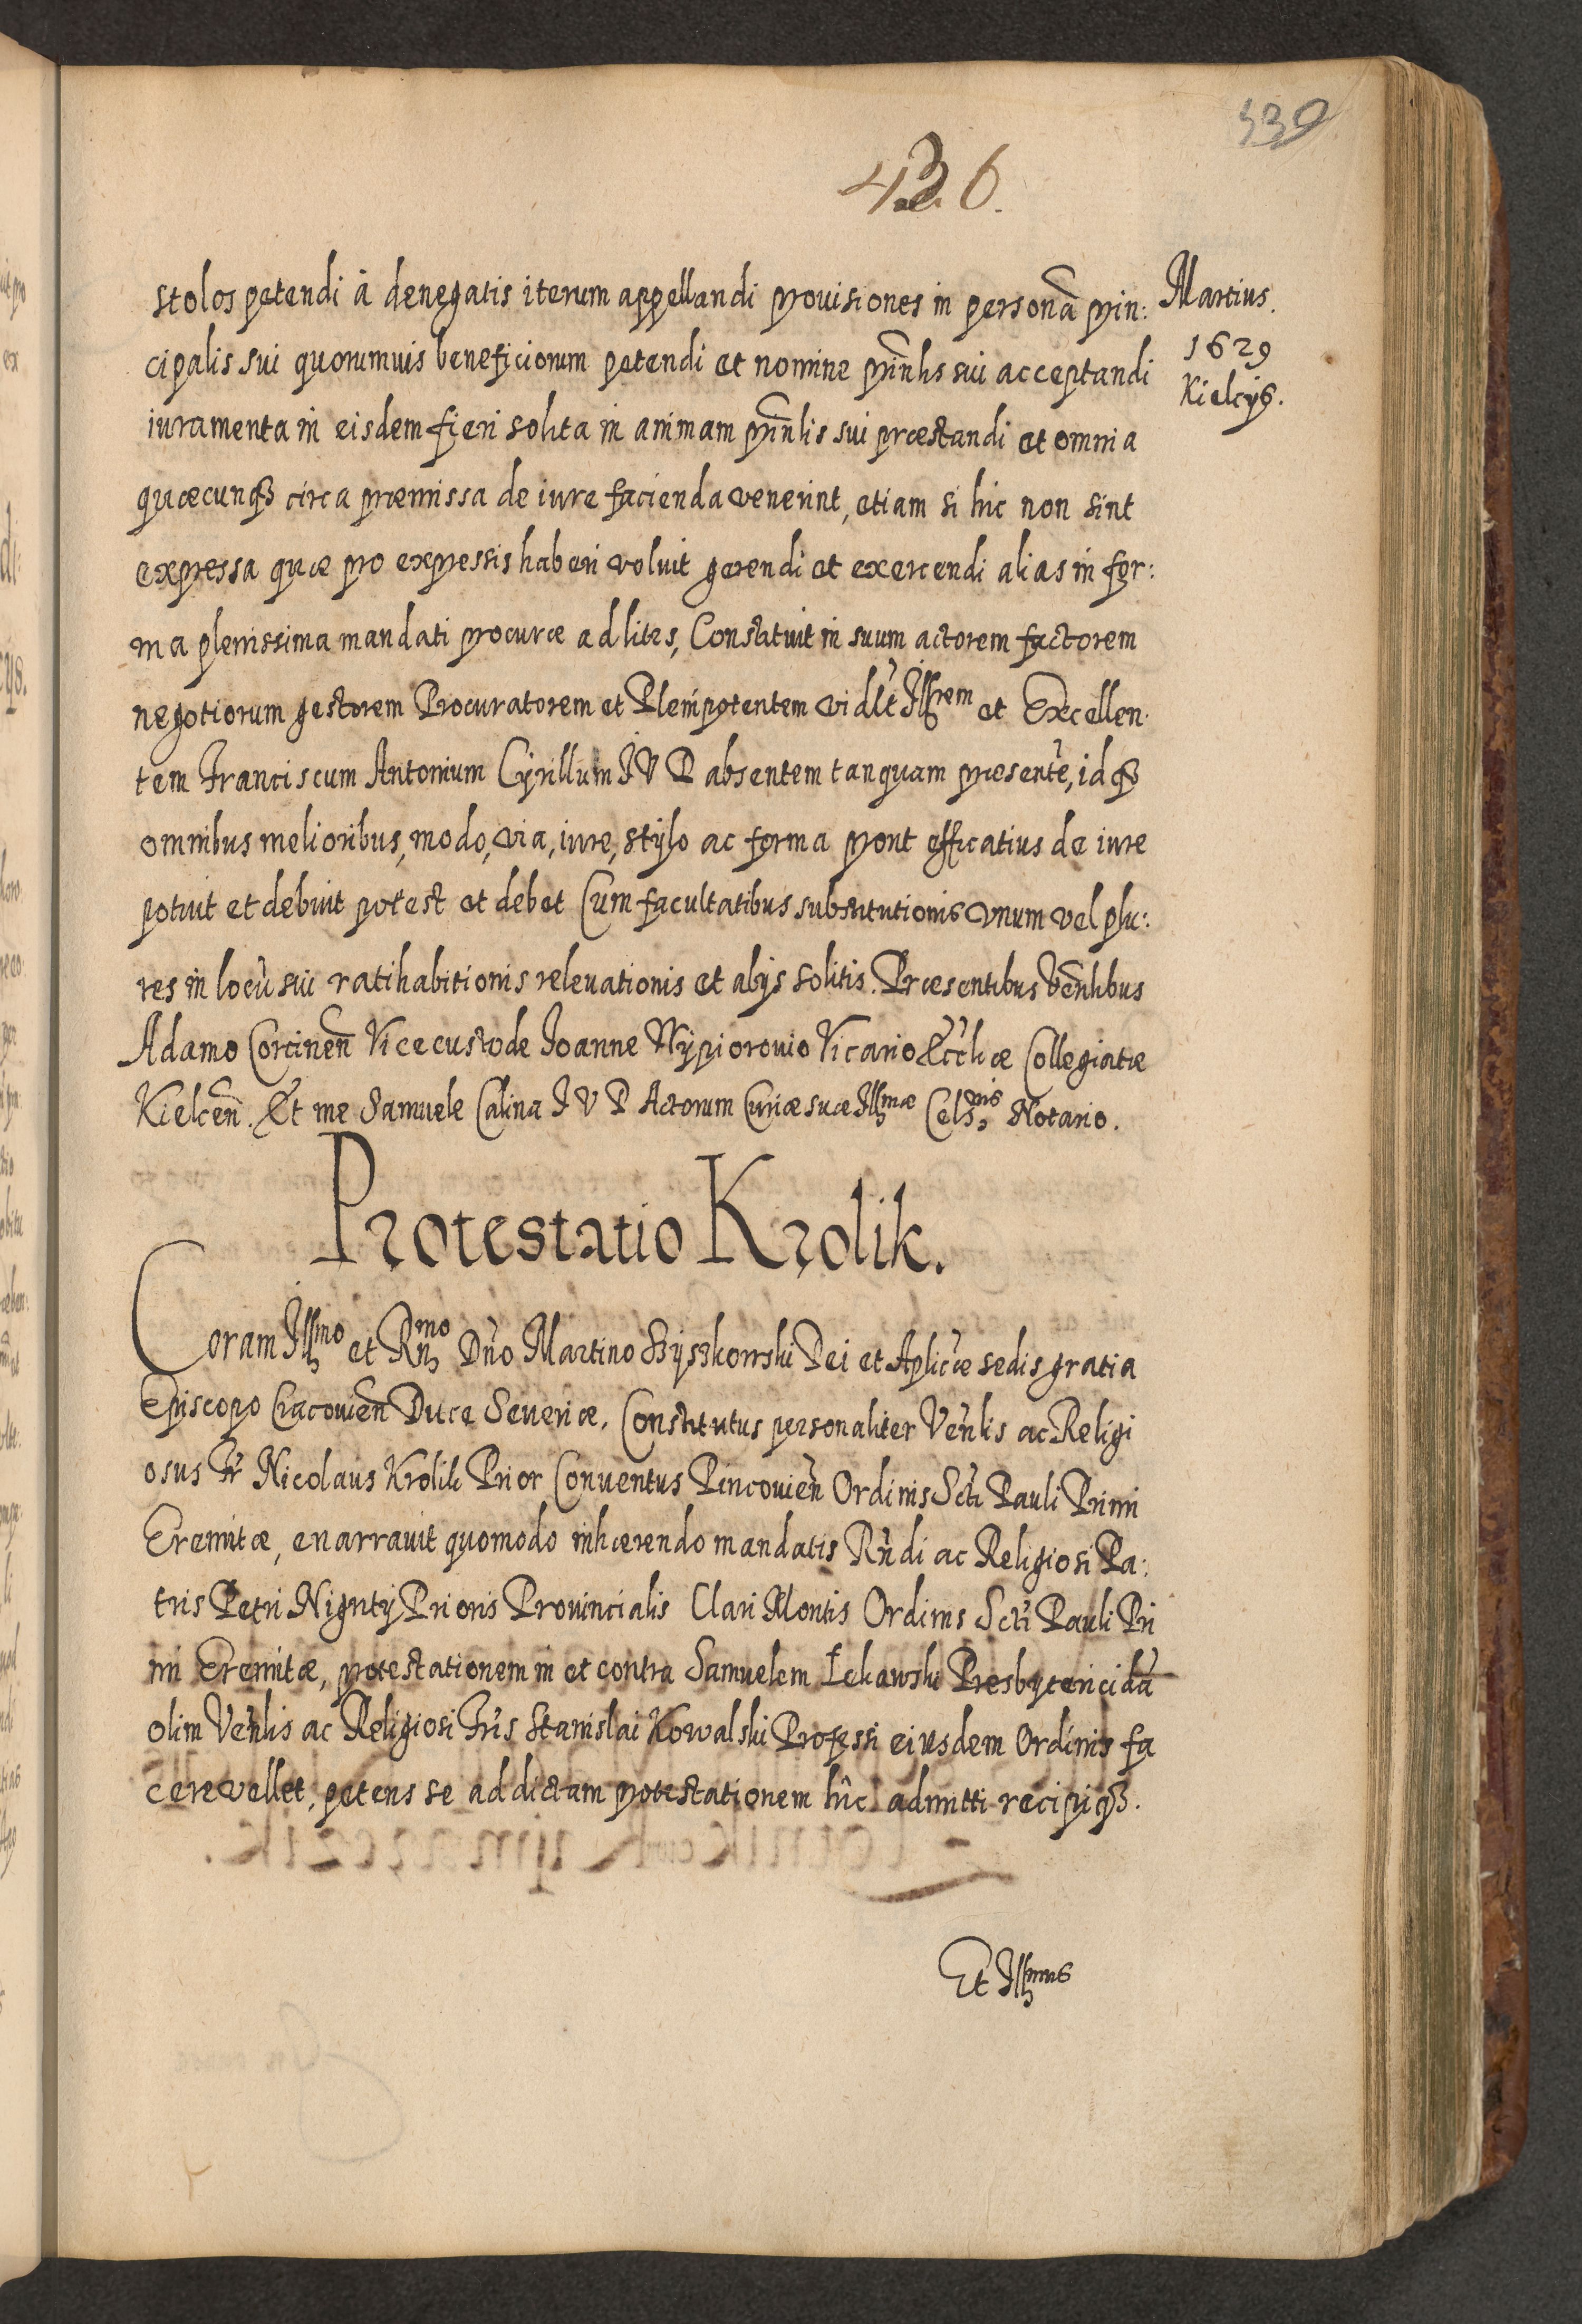 339
436.
stolos petendi à denegatis iterum appellandi prouisiones in personã prin:
Martius.
1629
Kielcijs.
cipalis sui quorumuis beneficiorum petendi et nomine prin̄lis sui acceptandi
iuramenta in eisdem fieri solita in animam prin̄lis sui præstandi et omnia
quæcunqȝ circa præmissa de iure facienda venerint, etiam si hic non sint
expressa quæ pro expressis haberi voluit gerendi et exercendi alias in for:
ma plenissima mandati procuræ ad lites, Constituit in suum actorem factorem
negotiorum gestorem Procuratorem et Plenipotentem vidlt Illrem et Excellen
tem Franciscum Antonium Cyrillum I V D absentem tanquam præsentẽ, idqȝ
omnibus melioribus, modo, via, iure, stylo ac forma prout efficatius de iure
potuit et debuit potest et debet Cum facultatibus substitutionis vnum vel plu:
res in locũ sui ratihabitionis releuationis et alijs solitis. Præsentibus Ven̄libus
Adamo Corcinen̄ Vicecustode Ioanne Wypiorouio Vicario Eccliæ Collegiatæ
Kielcen̄. Et me Samuele Calina I V D Actorum Curiæ suæ Illmæ Celsnis Notario.
Protestatio Krolik.
Coram Illmo et Rn̄mo Dn̄o Martino Szyszkowski Dei et Aplicæ sedis gratia
Episcopo Cracouien̄ Duce Seueriæ. Constitutus personaliter Ven̄lis ac Religi
osus Fr̄ Nicolaus Krolik Prior Conuentus Pincouien̄ Ordinis Scti Pauli Primi
Eremitæ, enarrauit quomodo inhærendo mandatis Rn̄di ac Religiosi Pa:
tris Petri Nigrity Prioris Prouincialis Clari Montis Ordinis Scti Pauli Pri
mi Eremitæ, protestationem in et contra Samuelem Łekawski Presbytericidã
olim Ven̄lis ac Religiosi Fr̄is Stanislai Kowalski Professi eiusdem Ordinis fa
cere vellet, petens se ad dictam protestationem hic admitti recipiqȝ.
Et Illmus